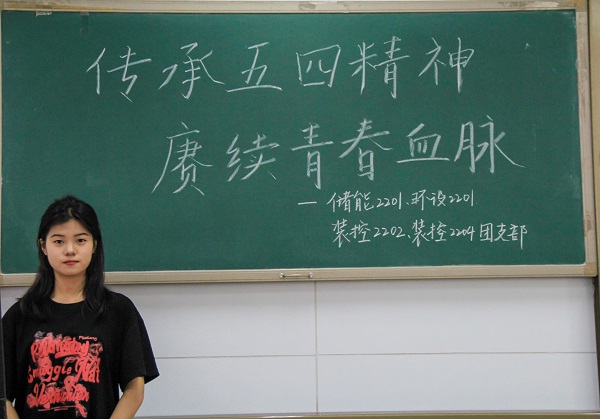 传承五四精神
赓续青春血脉
—储能2201、环设2201
装控2202、装控2204团支部